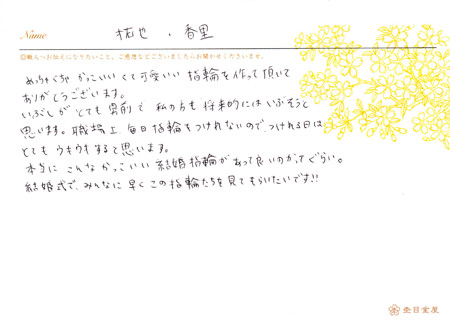 Name 拓也 . 香里
◎職人へお伝えになりたいこと、ご感想などございましたらお聞かせくださいませ。
めっちゃくちゃ かっこいい くて可愛いい 指輪を作って頂いて
ありがとうございます。
いぶしが とても 男前で 私の方も 将来的には いぶそうと
思います。職場上 毎日指輪をつけれないので つけれる日は
とても ウキウキすると思います。
本当に こんな かっこいい 結婚指輪が あって良いのかってぐらい。
結婚式で、みんなに 早く この指輪たちを 見てもらいたいです!!
杢目金屋